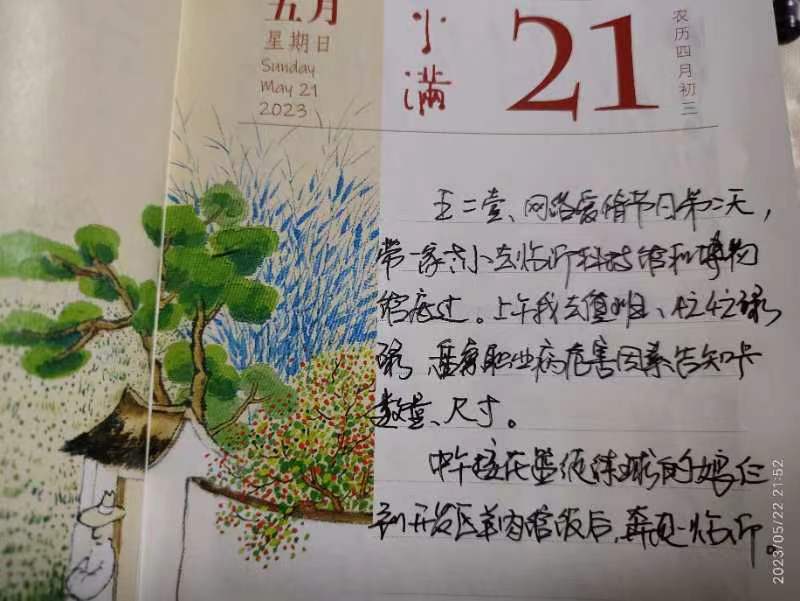 五月
星期日
Sunday
May 21
2023
小满
21
农历四月初三
五二壹、网络爱情节日第二天，
带一家六小去临沂科技馆和博物
馆度过。上午我去值班、忙忙碌
碌 查看职业病危害因素告知卡
数量、尺寸。
中午接在
到开发区羊肉馆饭后，奔现临沂。
2023/05/22 21:52